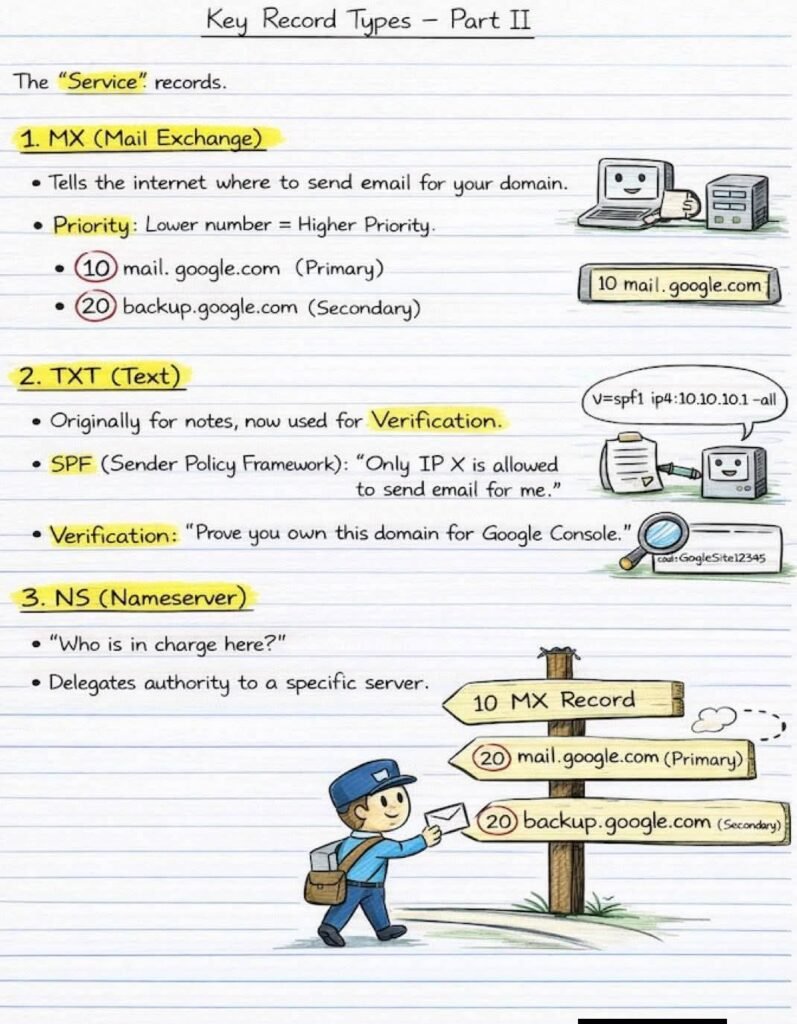 Key Record Types – Part II
The “Service”. records.
1. MX (Mail Exchange)
• Tells the internet where to send email for your domain.
• Priority: Lower number = Higher Priority.
• 10 mail. google.com (Primary)
• 20 backup.google.com (Secondary)
10 mail.google.com
2. TXT (Text)
• Originally for notes, now used for Verification.
• SPF (Sender Policy Framework): “Only IP X is allowed
to send email for me.”
v=spf1 ip4:10.10.10.1 -all
• Verification: “Prove you own this domain for Google Console.”
GogleSite12345
3. NS (Nameserver)
• “Who is in charge here?”
• Delegates authority to a specific server.
10 MX Record
20 mail.google.com (Primary)
20 backup.google.com (Secondary)